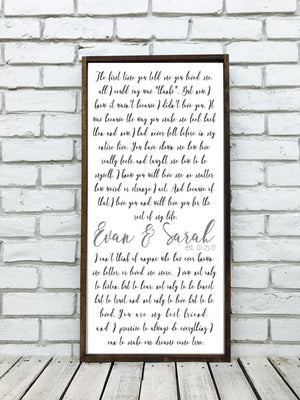 The first time you told me you loved me,
all I could say was "thanks". But now, I
know it wasn't because I didn't love you. It
was because the way you make me feel, back
then and now, I had never felt before in my
entire live. You have shown me how love
really feels and taught me how to be
myself. I know you will love me no matter
how weird or strange I act. And because of
that, I love you and will love you for the
rest of my life.
Evan & Sarah
est. 01.25.17
I can't think of anyone who has ever known
me better, or loved me more. I vow not only
to listen, but to hear, not only to be honest
but to trust and not only to love but to be
loved. You are my best friend,
and I promise to always do everything I
can to make our dreams come true.